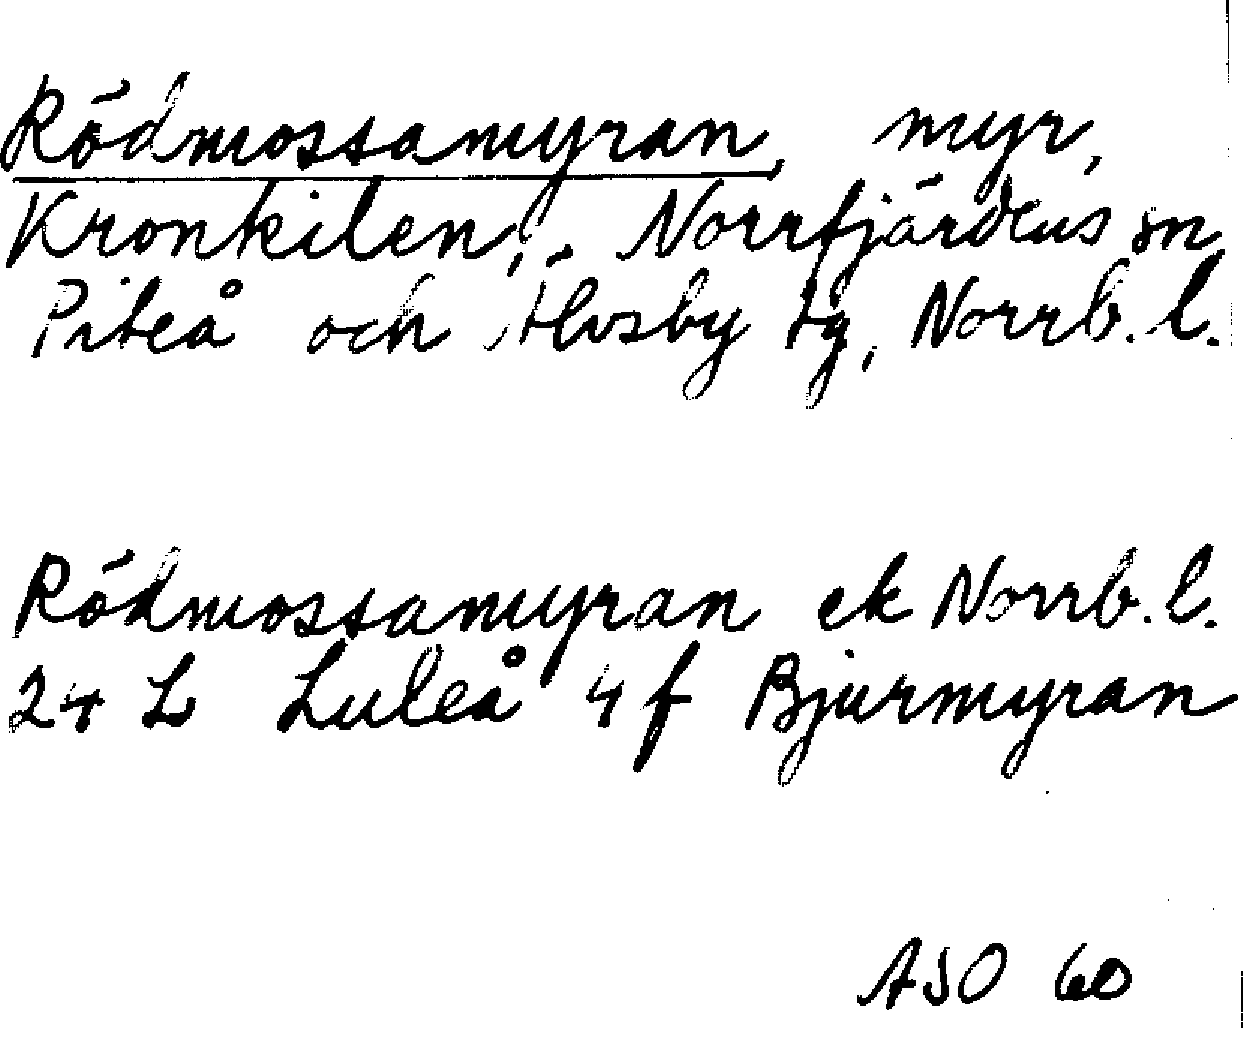 Rödmossamyran, myr,
Kronkilen, Norrfjärdens sn,
Piteå och Älvsby tg, Norrb. l.
Rödmossamyran ek Norrb. l.
24 L Luleå 4 f Bjurmyran
ASO 60